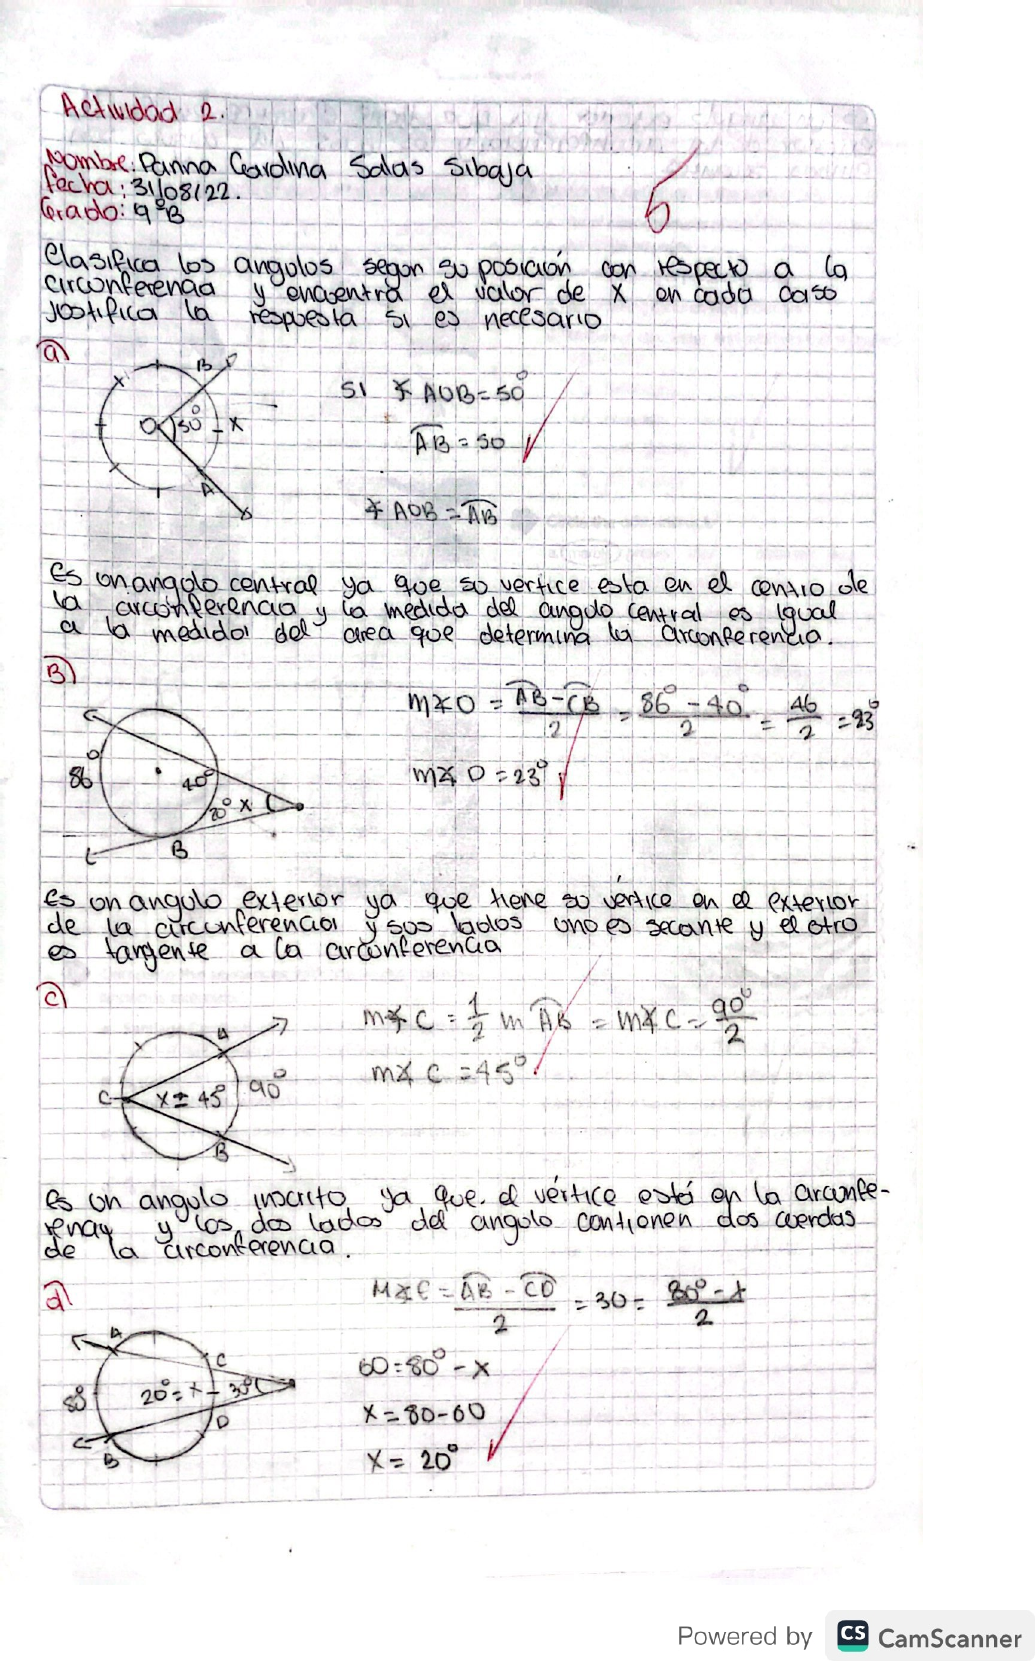 Actividad 2.
Nombre: Panna Carolina Salas Sibaja
fecha: 31/08/22.
Grado: 9°B
5
Clasifica los angulos segun su posición con respecto a la
circunferencia y encuentra el valor de x en cada caso,
justifica la respuesta si es necesario
a)
B
O 50° x
A
Si ∡ AOB = 50°
AB = 50
∡ AOB = AB
Es un angulo central ya que su vertice esta en el centro de
la circunferencia y la medida del angulo central es igual
a la medida del area que determina la circonferencia.
B)
86°
40°
20° x
B
m∡O = AB - CB / 2 = 86° - 40° / 2 = 46 / 2 = 23°
m∡ O = 23°
Es un angulo exterior ya que tiene su vértice en el exterior
de la circunferencia y sus lados uno es secante y el otro
es tangente a la circonferencia
c)
A
C x = 45° 90°
B
m∡ C = 1/2 m AB = m∡ C = 90° / 2
m∡ C = 45°
Es un angulo inscrito ya que. el vértice está en la circunfe-
renay y los dos lados del angulo contienen dos cuerdas
de la circonferencia.
d)
A
C
80° 20° = x 30°
D
B
M∡C = AB - CD / 2 = 30 = 80° - x / 2
60 = 80° - x
x = 80 - 60
x = 20°
Powered by CS CamScanner